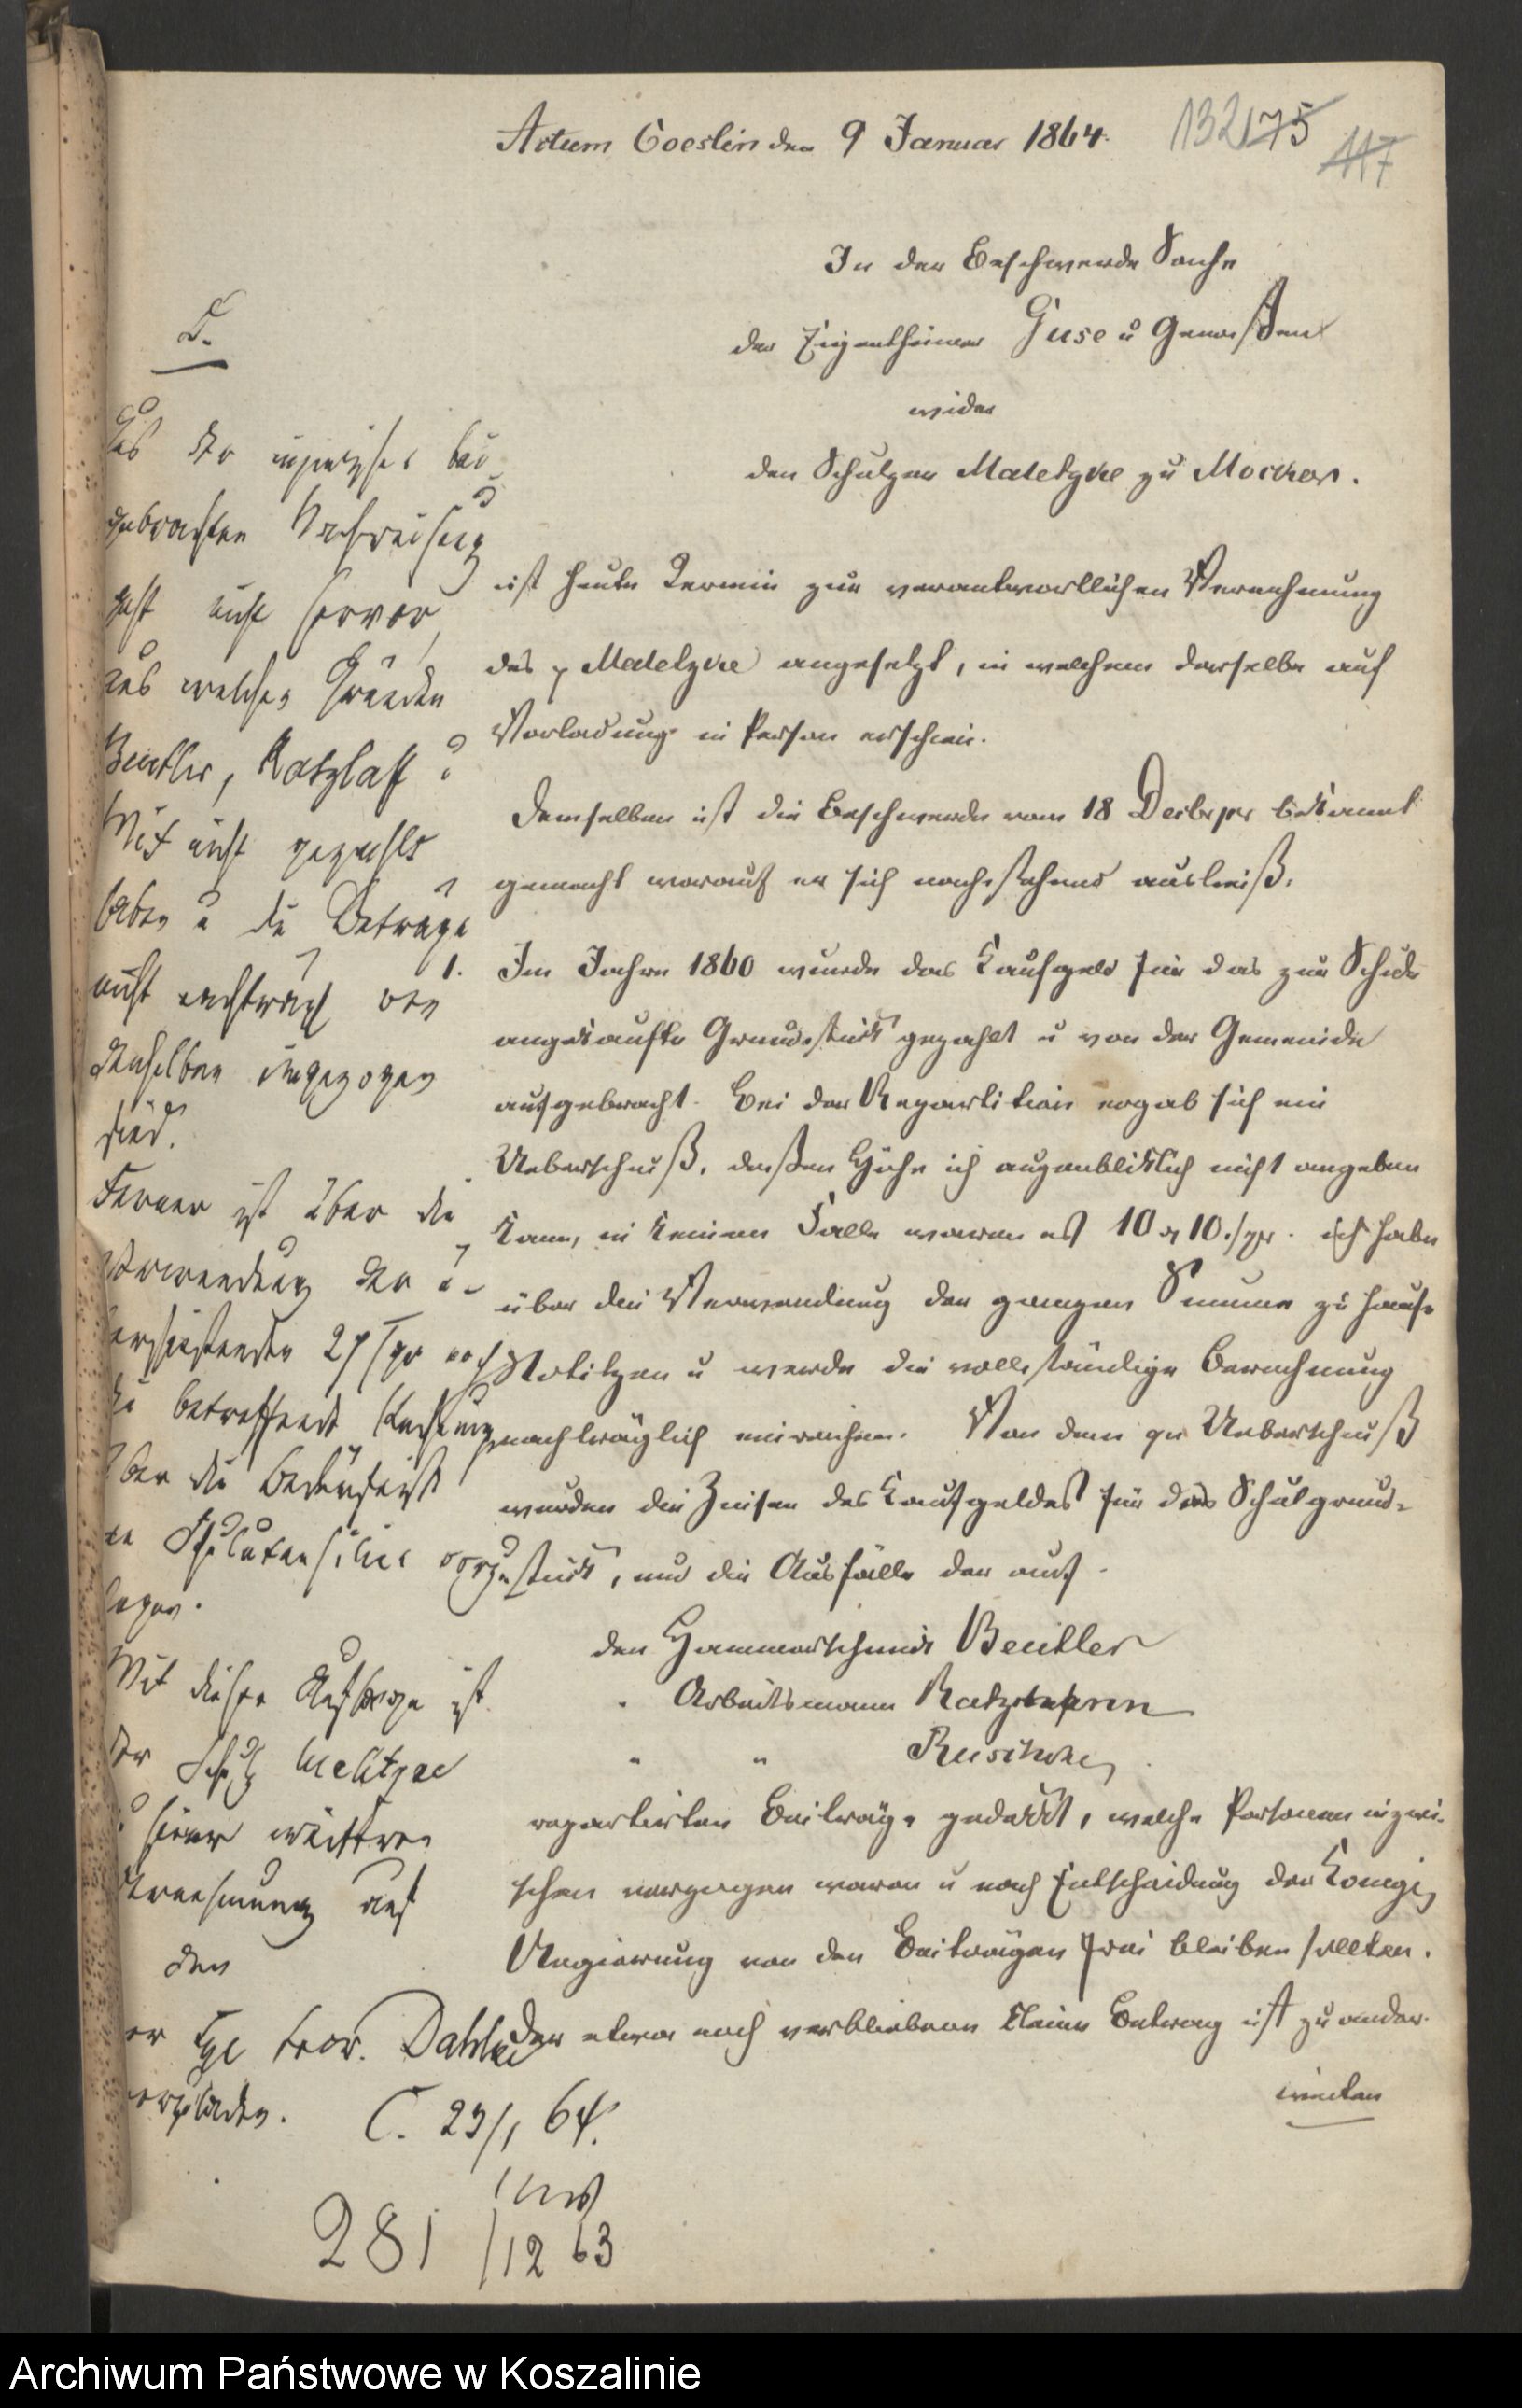 Actum Coeslin den 9 Januar 1864.
132 175
117
In der Beschwerde Sache
der Eigenthümer Guse u Genoßen
wider
den Schulzen Matetzke zu Mocker.
ist heute Termin zur verantwortlichen Vernehmung
des p Matetzke angesetzt, in welchem derselbe auf
Vorladung in Person erschien.
Demselben ist die Beschwerde vom 18 Decbr pr bekannt
gemacht worauf er sich nachstehend ausließ.
1. Im Jahre 1860 wurde das Kaufgeld für das zur Schule
angekaufte Grundstück gezahlt u von der Gemeinde
aufgebracht. Bei der Repartition ergab sich ein
Ueberschuß, deßen Höhe ich augenblicklich nicht angeben
kann, in keinem Falle waren es 10 rt 10 sgr. ich habe
über die Verwendung der ganzen Summe zu Hause
Notitzen u werde die vollständige Berechnung
nachträglich einreichen. Von dem qu Ueberschuß
wurden die Zinsen des Kaufgeldes für das Schulgrund-
stück, und die Ausfälle der auf
den Hammerschmidt Beutler
" Arbeitsmann Ratzmann
" " Ruschke
repartirten Beiträge gedeckt, welche Personen inzwi-
schen verzogen waren u nach Entscheidung der Königl
Regierung von den Beiträgen frei bleiben sollten.
der etwa noch verbliebene kleine Betrag ist zu ander-
weiten
D.
Aus der
gebrachten Nachweisung
geht nicht hervor,
aus welchen Gründen
Beutler, Ratzlaff
nicht gezahlt
haben u die Beträge
nicht von
denselben eingezogen
sind.
Ferner ist über die
Verwendung der
27 sgr noch
die betreffende Rechnung
über die
Schulutensilien vorzu-
legen.
Mit dieser Auflage ist
der Schulz
seiner weitern
Vernehmung auf
den
Dahlke
vorzuladen.
C. 23/1 64.
281 /12 63
Archiwum Państwowe w Koszalinie